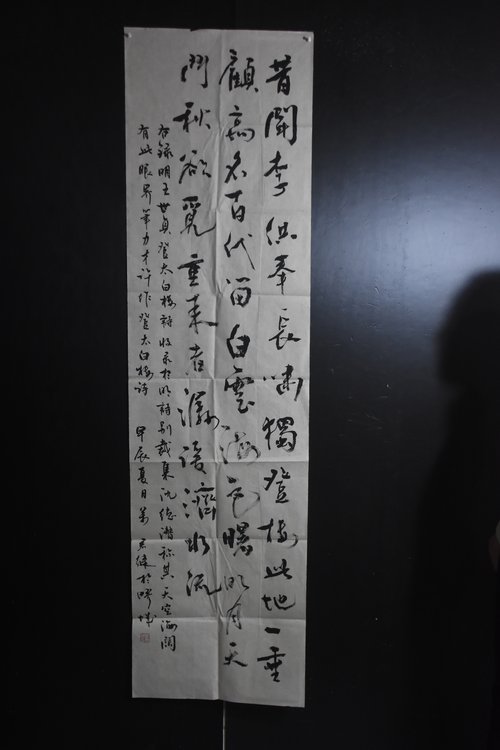 昔聞李供奉長嘯獨登楼此地一垂
顧高名百代留白雲海色曙明月天
門秋欲覓重来者潺湲濟水流
右録明王世貞登太白楼詩收录於明詩別裁集沈德潜称其天空海闊
有此眼界筆力才許作登太白楼詩 甲辰夏日 於疁城